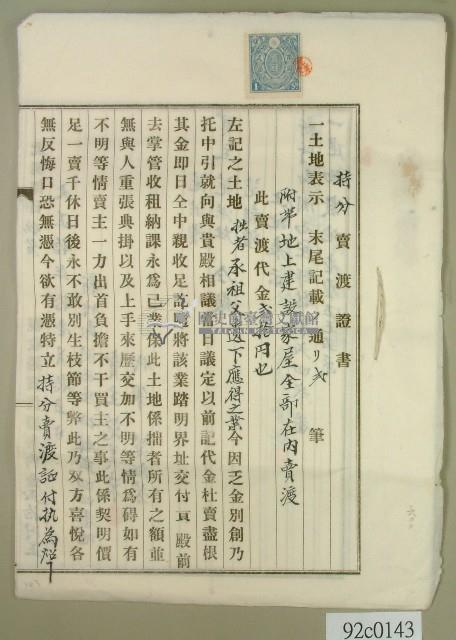 持分賣渡證書
一土地表示 末尾記載ノ通リ弐筆
附帶地上建設家屋全部在内賣渡
此賣渡代金 拾円也
左記之土地拙者承祖父遺下應得之業今因乏金別創乃
托中引就向與貴殿相議當日議定以前記代金杜賣盡根
其金即日仝中親收足訖 將該業踏明界址交付貴殿前
去掌管收租納課永爲己業保此土地係拙者所有之額並
無與人重張典掛以及上手來歷交加不明等情爲碍如有
不明等情賣主一力出首負擔不干買主之事此係契明價
足一賣千休日後永不敢別生枝節等弊此乃双方喜悅各
無反悔口恐無憑今欲有憑特立持分賣渡証付执為炤
92c0143